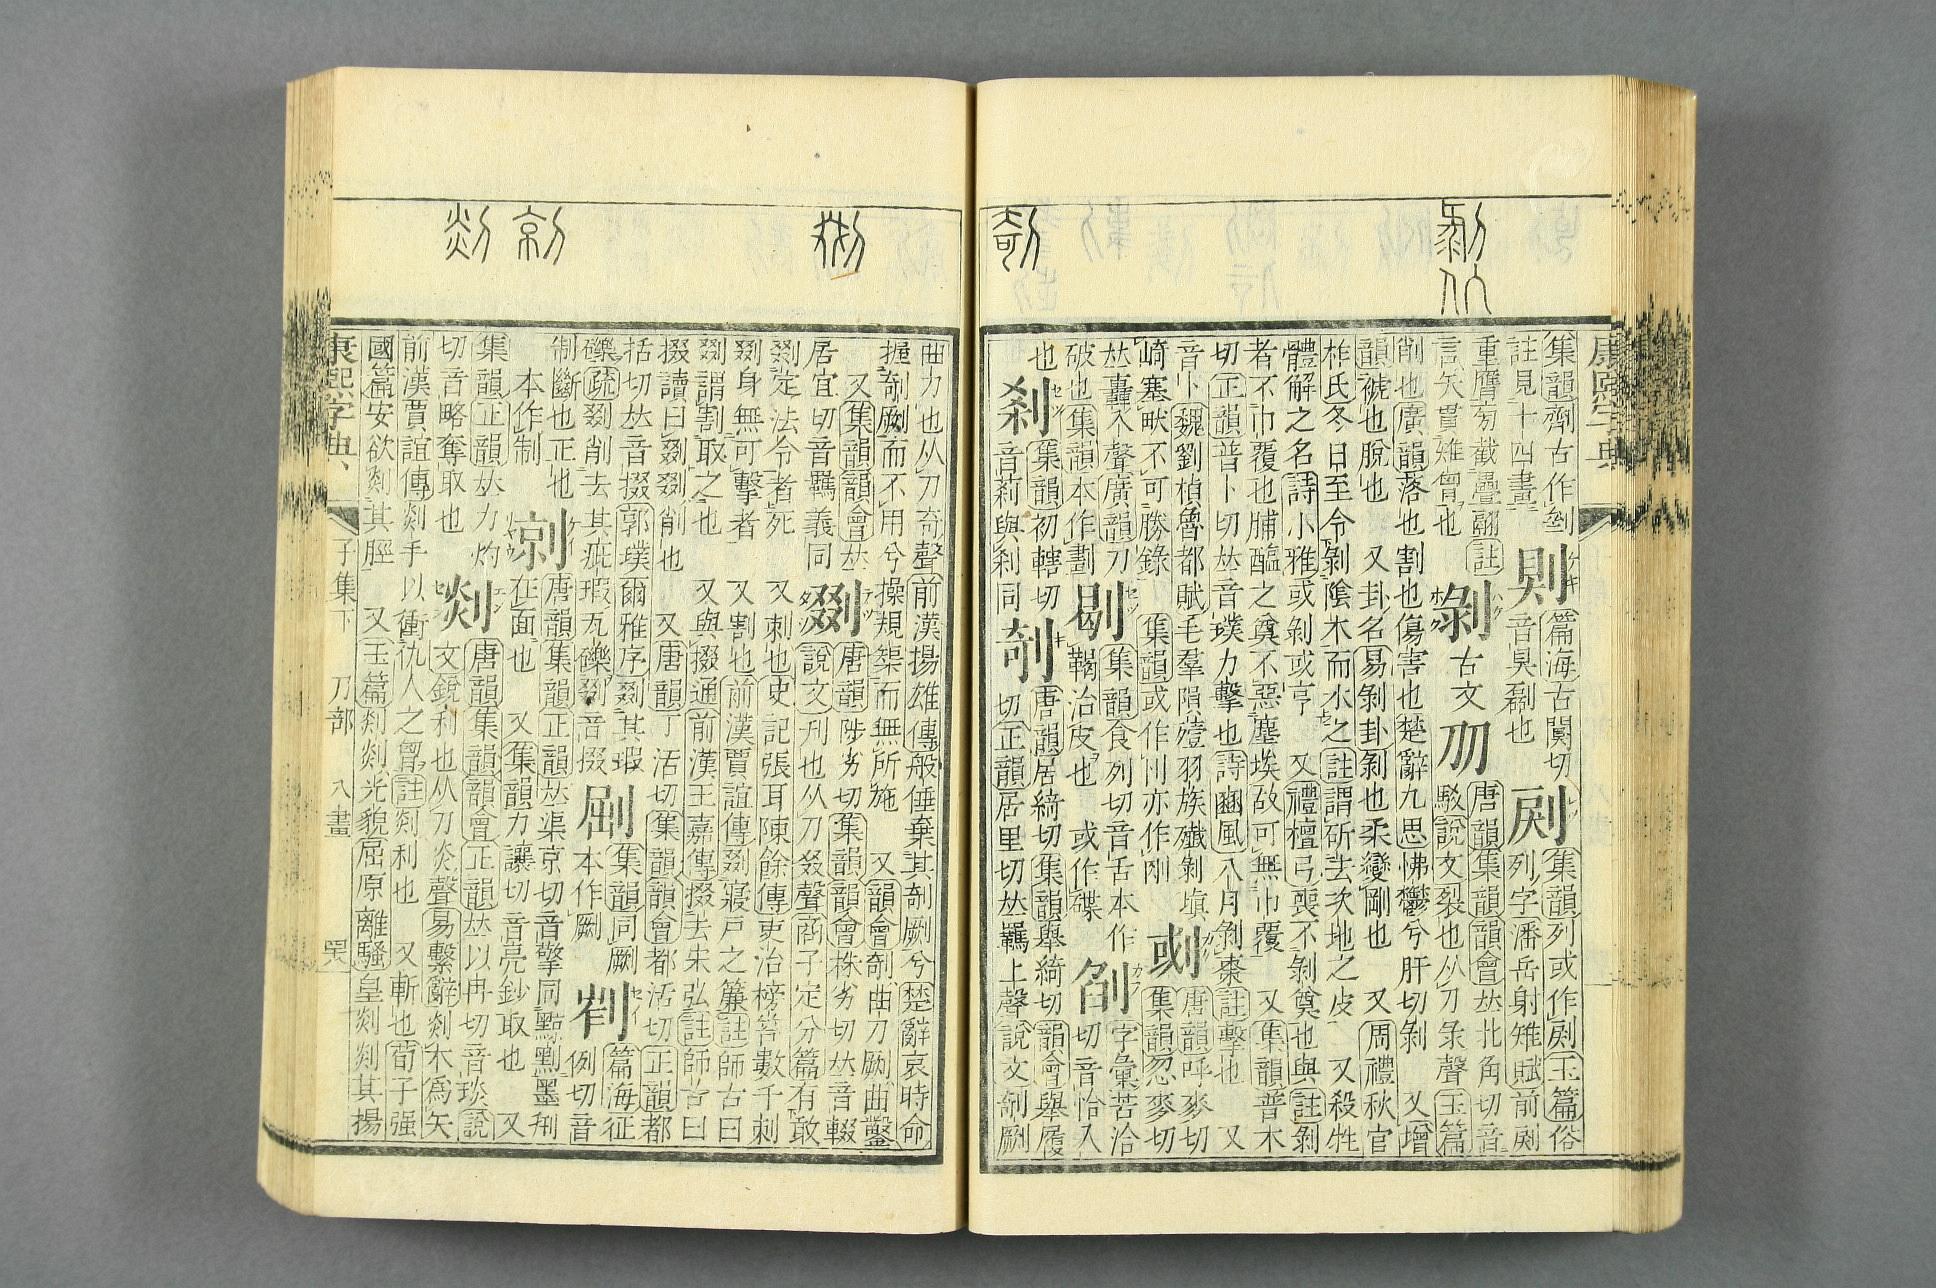 康熙字典
集韻劑古作
註見十四畫
篇海古闃切
音狊也
集韻列或作㓯玉篇俗
列字潘岳射雉賦前㓯
㓯
重膺㫄截疊翮註
言矢貫雉會也
剝
古文
唐韻集韻韻會𠀤北角切音
駁說文裂也从刀彔聲玉篇
削也廣韻落也割也傷害也楚辭九思怫鬱兮肝切剝 又增
韻褫也脫也 又卦名易剝卦剝也柔變剛也 又周禮秋官
柞氏冬日至令剝隂木而水之註謂斫去次地之皮 又殺牲
體解之名詩小雅或剝或亨 又禮檀弓喪不剝奠也與註剝
者不巾覆也脯醢之奠不惡塵埃故可無巾覆 又集韻普木
切正韻普卜切𠀤音璞力擊也詩豳風八月剝棗註擊也 又
音卜魏劉楨魯都賦毛羣隕殪羽族殲剝塡
崎塞畎不可勝錄 集韻或作刂亦作刚
剨
唐韻呼麥切
集韻忽麥切
𠀤轟入聲廣韻刀
破也集韻本作劃
剔
集韻食列切音舌本作
鞨治皮也 或作碟
㓣
字彙苦洽
切音恰入
也
剎
集韻初轄切
音䈟與刹同
剞
唐韻居綺切集韻舉綺切韻會舉履
切正韻居里切𠀤羈上聲說文剞劂
曲刀也从刀奇聲前漢揚雄傳般倕棄其剞劂兮楚辭哀時命
握剞劂而不用兮操規榘而無所施 又韻會剞曲刀劂曲鑿
又集韻韻會𠀤
居宜切音羈義同
剟
唐韻陟劣切集韻韻會株劣切𠀤音輟
說文刋也从刀叕聲商子定分篇有敢
剟定法令者死 又刺也史記張耳陳餘傳吏治榜笞數千刺
剟身無可擊者 又割也前漢賈誼傳剟寢戸之簾註師古曰
剟謂割取之也 又與掇通前漢王嘉傳掇去朱弘註師古曰
掇讀曰剟剟削也 又唐韻丁活切集韻韻會都活切正韻都
括切𠀤音掇郭璞爾雅序剟其瑕
礫疏剟削去其疵瑕瓦礫剟音掇
㓖
集韻同劂
本作劂
篇海征
例切音
制斷也正也
本作制
剠
唐韻集韻正韻𠀤渠京切音擎同黥黥墨刑
在面也 又集韻力讓切音亮鈔取也 又
集韻正韻𠀤力灼
切音略奪取也
剡
唐韻集韻韻會正韻𠀤以冉切音琰說
文銳利也从刀炎聲易繫辭剡木爲矢
前漢賈誼傳剡手以衝仇人之胷註剡利也 又斬也荀子强
國篇安欲剡其脛 又玉篇剡剡光貌屈原離騷皇剡剡其揚
康熙字典 子集下 刀部 八畫